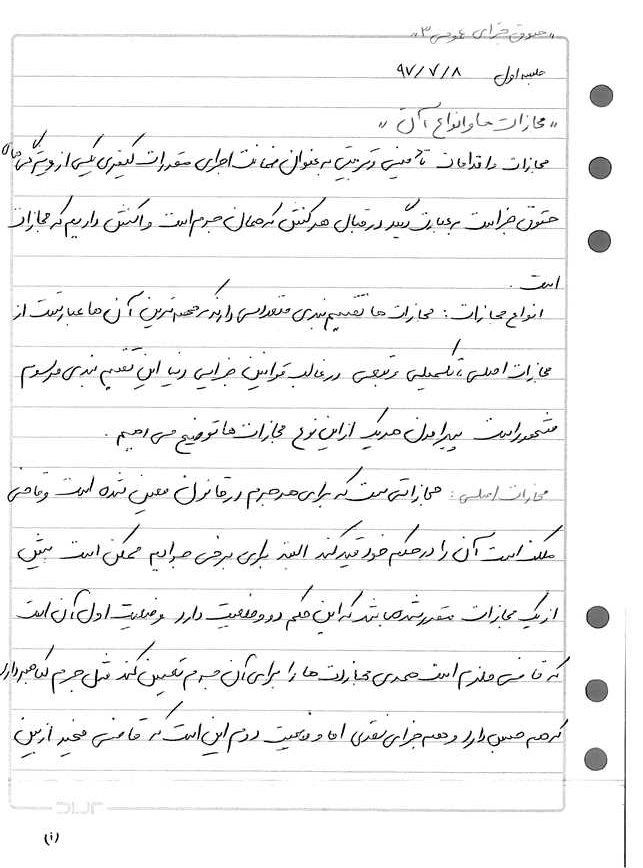 «حقوق جزای عمومی ۳»
جلسه اول ۹۷/۷/۸
«مجازات ها و انواع آن»
مجازات و اقدامات تأمینی و تربیتی به عنوان ضمانت اجرای مقررات کیفری یکی از ویژگی های
حقوق جزاست به عبارت دیگر در قبال هر کنش که همان جرم است واکنش داریم که مجازات
است.
انواع مجازات: مجازات ها تقسیم بندی متعددی دارند که مهمترین آن ها عبارتست از
مجازات اصلی، تکمیلی و تبعی در غالب قوانین جزایی دنیا این تقسیم بندی مرسوم
مشهور است پیرامون هریک از این نوع مجازات ها توضیح می دهیم.
مجازات اصلی: مجازاتی ست که برای هر جرم در قانون معین شده است و قاضی
مکلف است آن را در حکم خود قید کند البته برای برخی جرایم ممکن است بیش
از یک مجازات مقرر شده باشد که این حکم دو وضعیت دارد وضعیت اول آن است
که قاضی ملزم است همه ی مجازات ها را برای آن جرم تعیین کند مثل جرم کلاهبرداری
که هم حبس دارد و هم جزای نقدی اما وضعیت دوم این است که قاضی مخیر از بین
(۱)